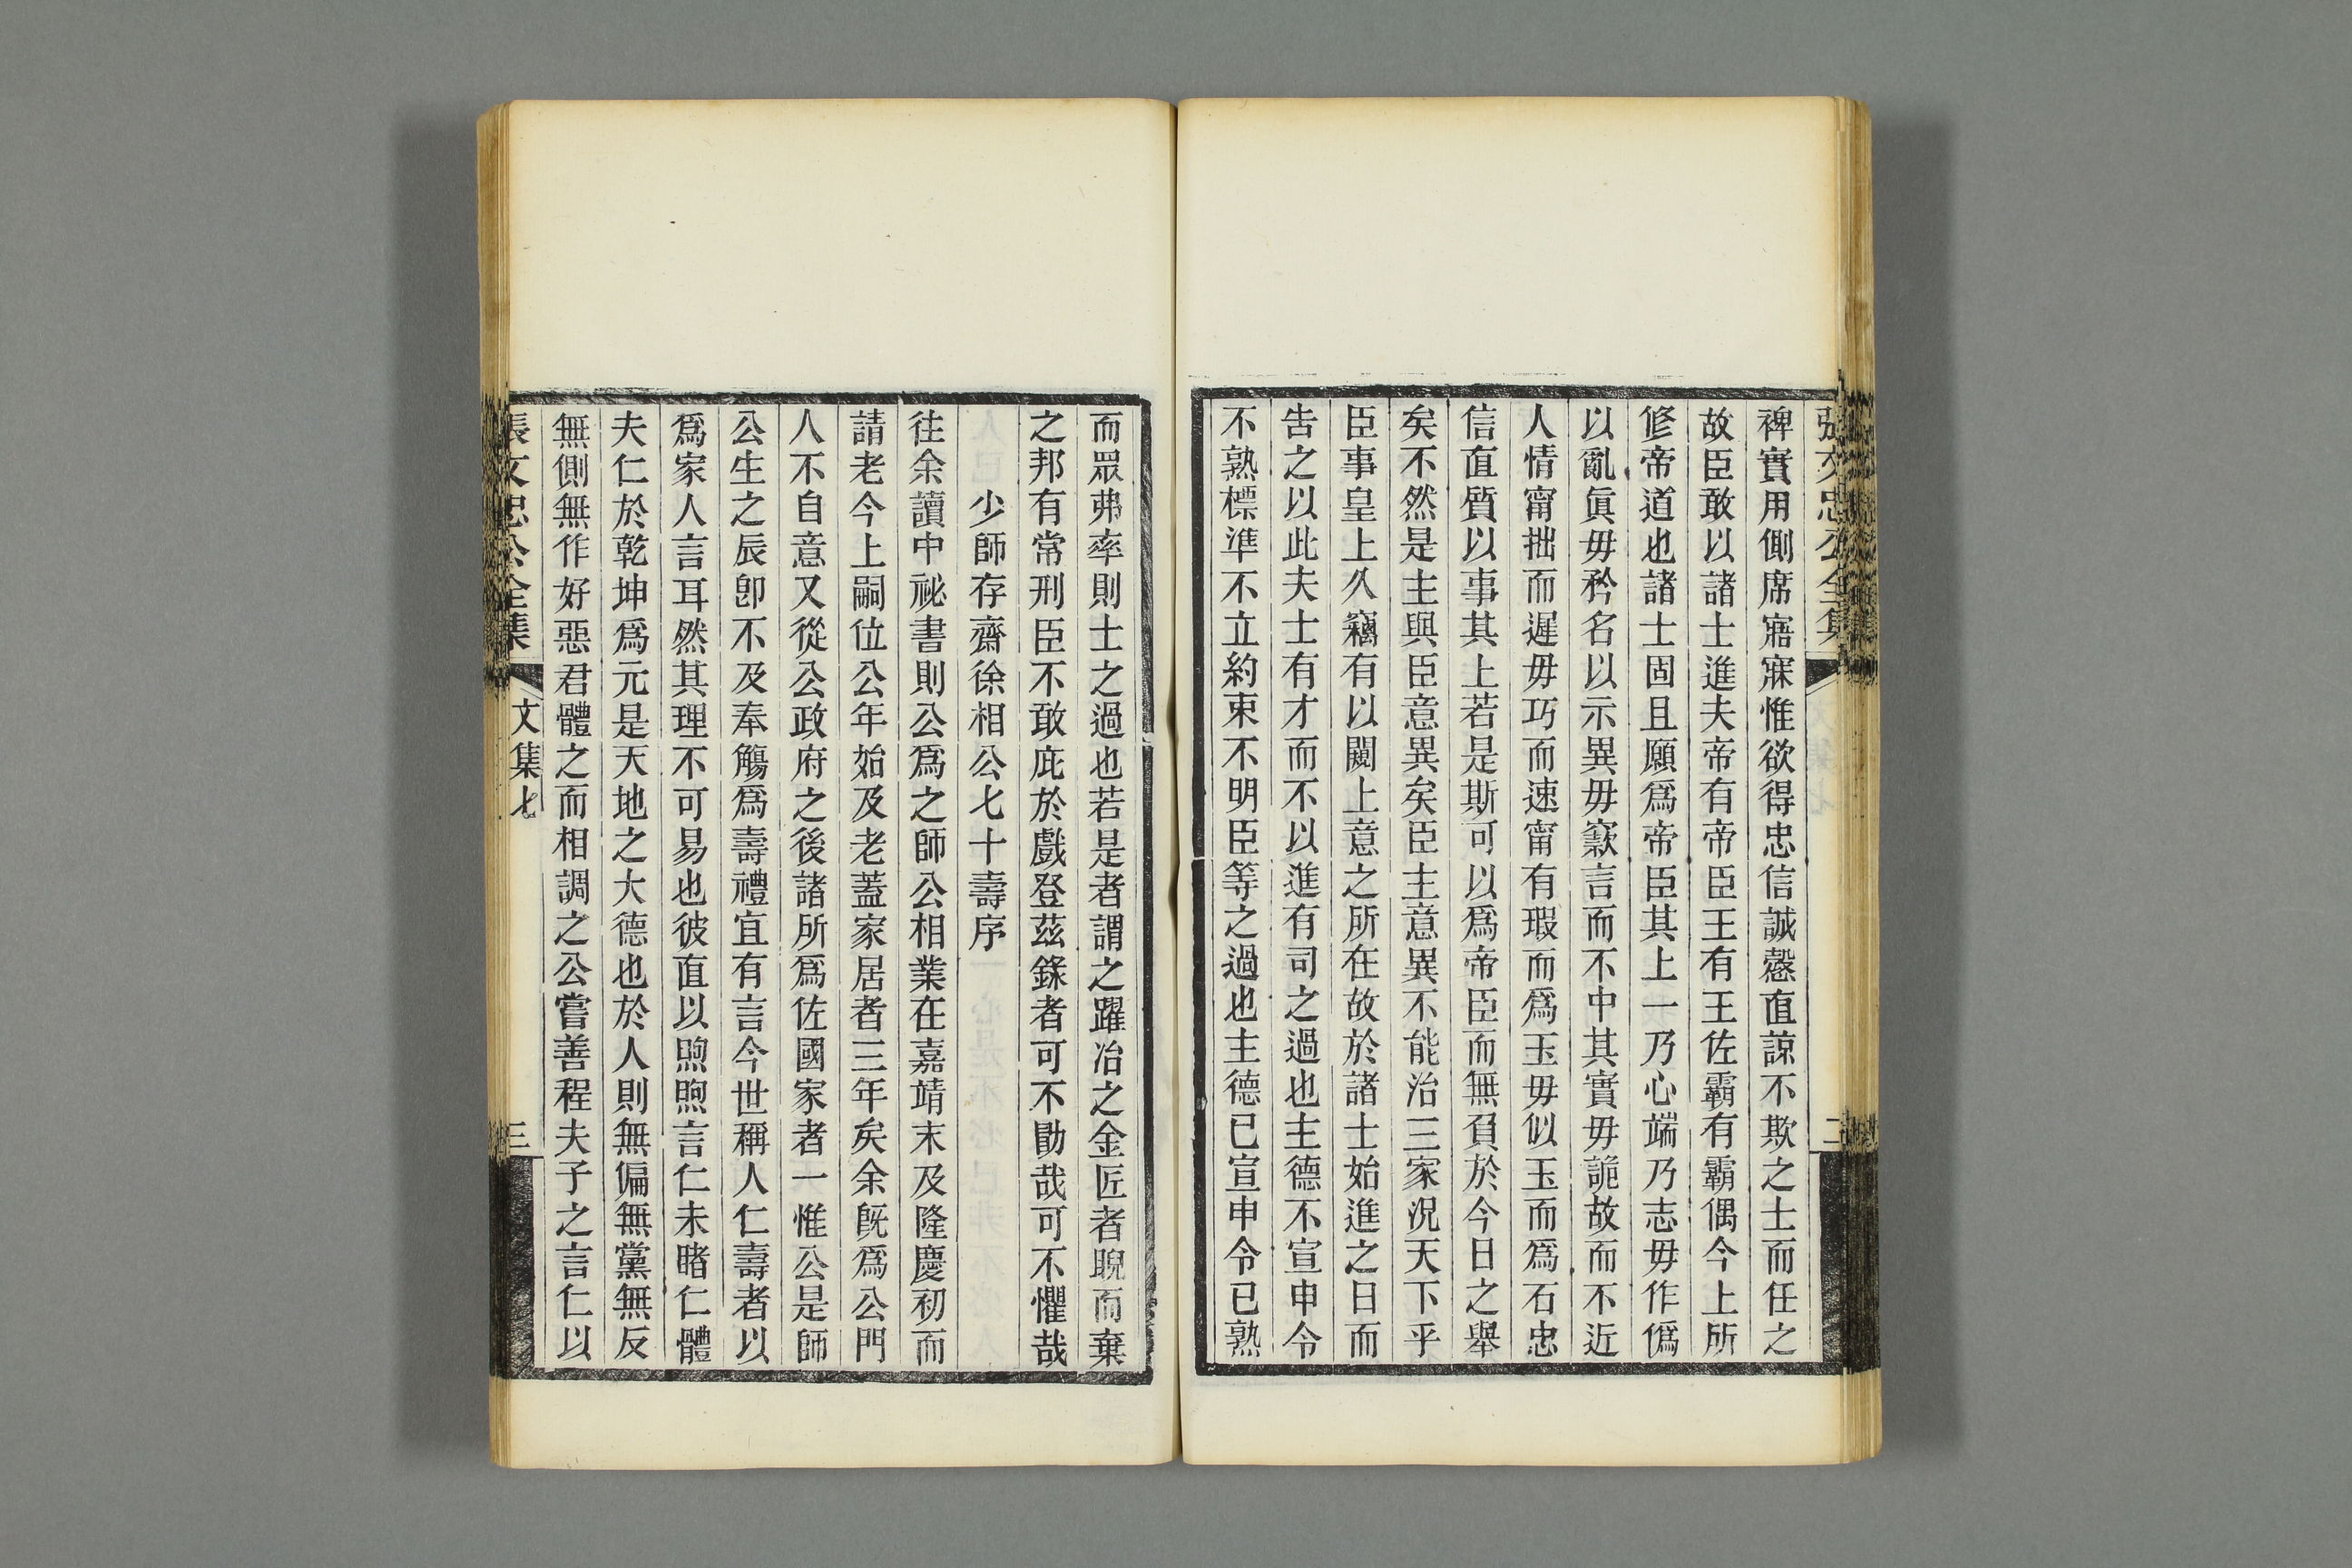 張文忠公全集
二
裨實用側席寤寐惟欲得忠信誠慤直諒不欺之士而任之
故臣敢以諸士進夫帝有帝臣王有王佐霸有霸偶今上所
修帝道也諸士固且願爲帝臣其上一乃心端乃志毋作僞
以亂眞毋矜名以示異毋窾言而不中其實毋詭故而不近
人情甯拙而遲毋巧而速甯有瑕而爲玉毋似玉而爲石忠
信直質以事其上若是斯可以爲帝臣而無負於今日之舉
矣不然是主與臣意異矣臣主意異不能治三家況天下乎
臣事皇上久竊有以闚上意之所在故於諸士始進之日而
告之以此夫士有才而不以進有司之過也主德不宣申令
不熟標準不立約束不明臣等之過也主德已宣申令已熟
而眾弗率則士之過也若是者謂之躍冶之金匠者睨而棄
之邦有常刑臣不敢庇於戲登茲錄者可不勖哉可不懼哉
少師存齋徐相公七十壽序
往余讀中祕書則公爲之師公相業在嘉靖末及隆慶初而
請老今上嗣位公年始及老蓋家居者三年矣余旣爲公門
人不自意又從公政府之後諸所爲佐國家者一惟公是師
公生之辰卽不及奉觴爲壽禮宜有言今世稱人仁壽者以
爲家人言耳然其理不可易也彼直以煦煦言仁未睹仁體
夫仁於乾坤爲元是天地之大德也於人則無偏無黨無反
無側無作好惡君體之而相調之公嘗善程夫子之言仁以
張文忠公全集
文集七
三